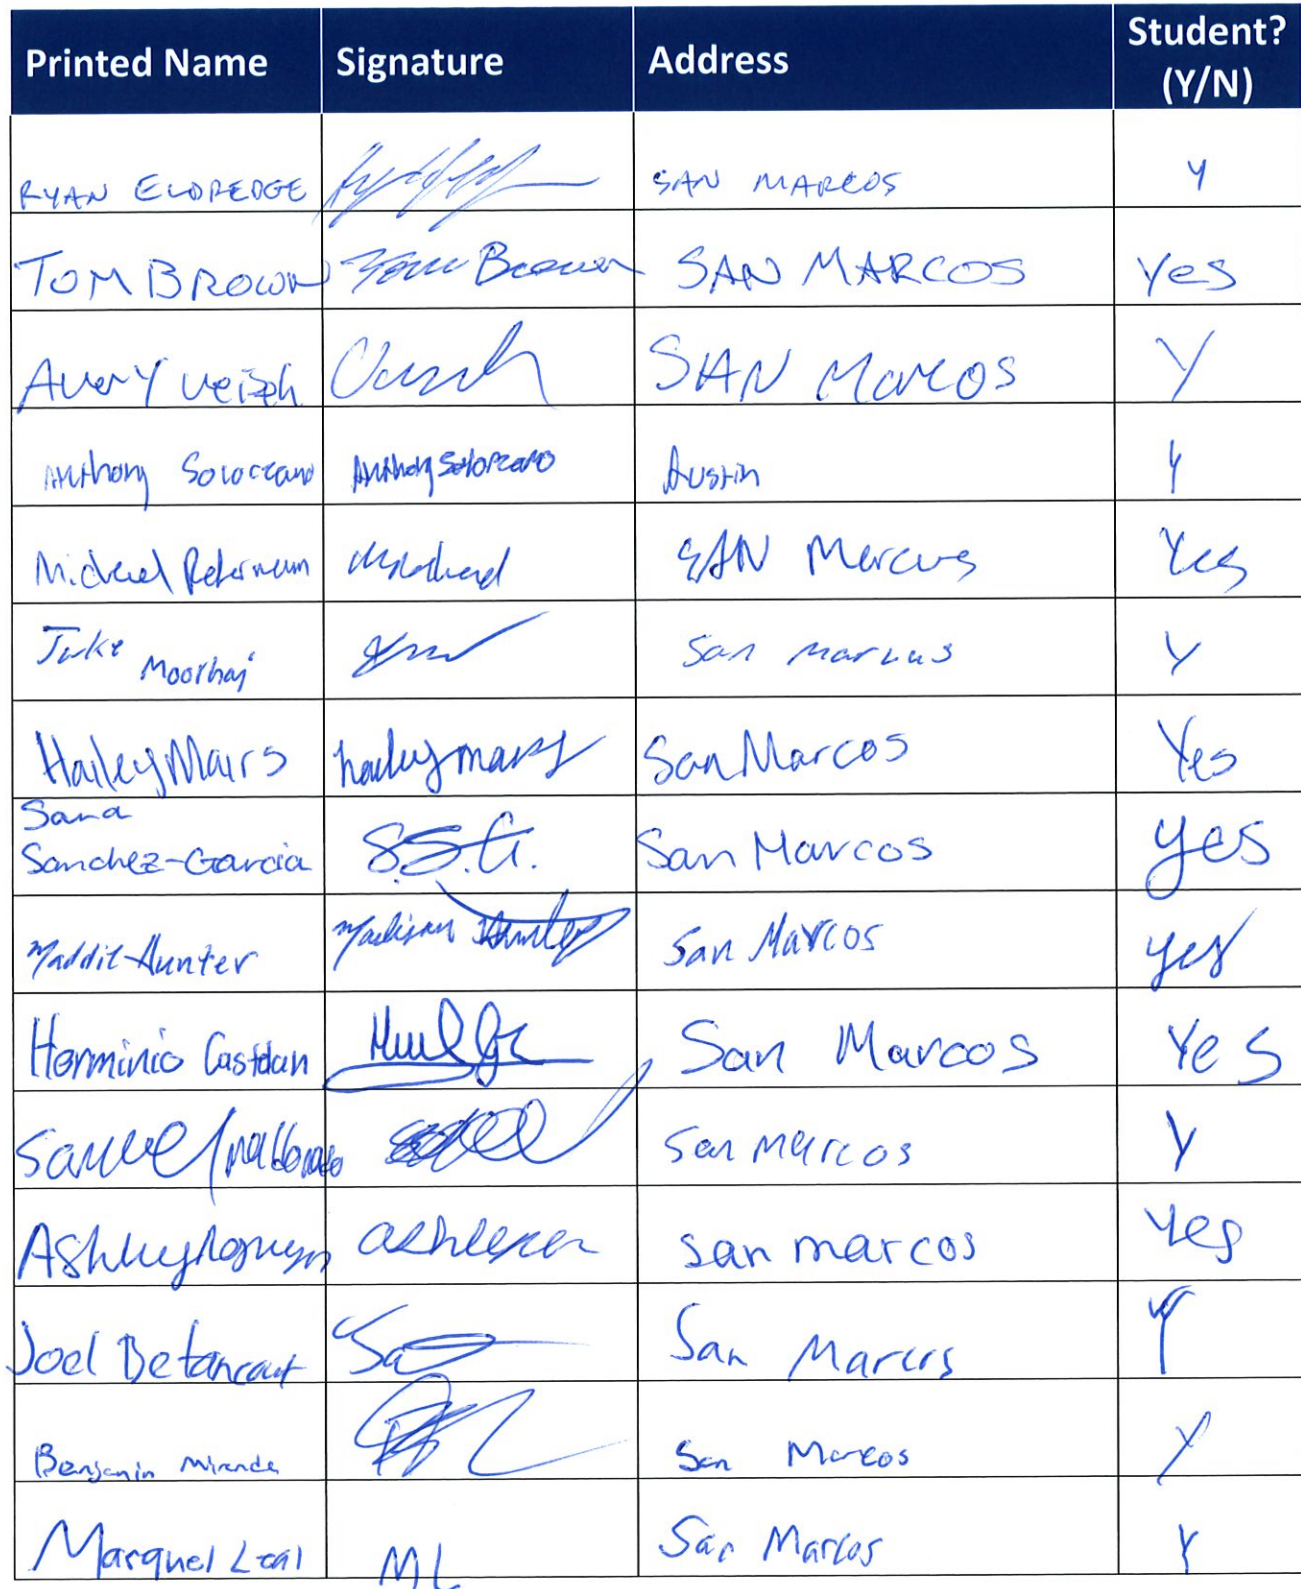 Printed Name Signature Address Student? (Y/N)
RYAN ELDREDGE SAN MARCOS Y
TOM BROWN Tom Brown SAN MARCOS Yes
Avery Veitch SAN Marcos Y
Anthony Solorzano Anthony Solorzano Austin Y
Michael SAN Marcus Yes
Jake San marcus Y
Hailey Mairs hailey mairs San Marcos Yes
Sara
Sanchez-Garcia S.S.G. San Marcos yes
Maddie Hunter Madison Hunter San Marcos yes
Herminio San Marcos Yes
Samuel Maldonado San marcos Y
Ashley san marcos Yes
Joel Betancourt San Marcos Y
Benjamin Miranda San Marcos Y
Marquel Leal ML San Marcos Y